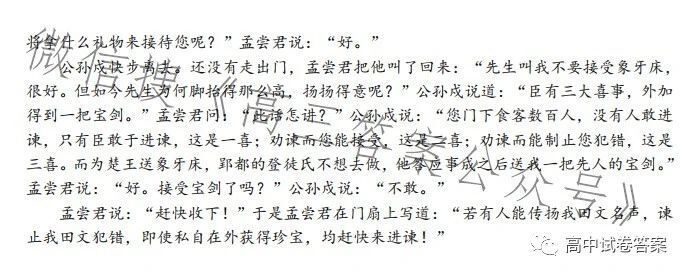 将拿什么礼物来接待您呢？”孟尝君说：“好。”
公孙戍快步离去。还没有走出门，孟尝君把他叫了回来：“先生叫我不要接受象牙床，
很好。但如今先生为何脚抬得那么高，扬扬得意呢？”公孙戍说道：“臣有三大喜事，外加
得到一把宝剑。”孟尝君问：“此话怎讲？”公孙戍说：“您门下食客数百人，没有人敢进
谏，只有臣敢于进谏，这是一喜；劝谏而您能接受，这是二喜；劝谏而能制止您犯错，这是
三喜。而为楚王送象牙床，郢都的登徒氏不想去做，他答应事成之后送我一把先人的宝剑。”
孟尝君说：“好。接受宝剑了吗？”公孙戍说：“不敢。”
孟尝君说：“赶快收下！”于是孟尝君在门扇上写道：“若有人能传扬我田文名声，谏
止我田文犯错，即使私自在外获得珍宝，均赶快来进谏！”
微信搜《高三答案公众号》
高中试卷答案